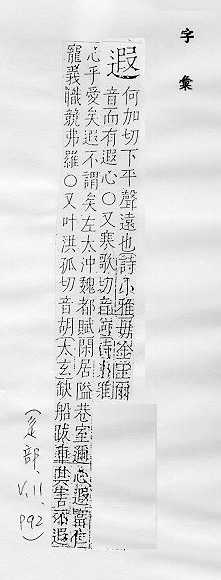 字彙
遐
何加切下平聲遠也詩小雅毋金玉爾
音而有遐心〇又寒歌切音詩小雅
心乎愛矣遐不謂矣左太沖魏都賦閑居隘巷室邇心遐富仁
寵義職競弗羅〇又叶洪孤切音胡太玄缺船跋車其害不遐
(辵部, V.11, P92)